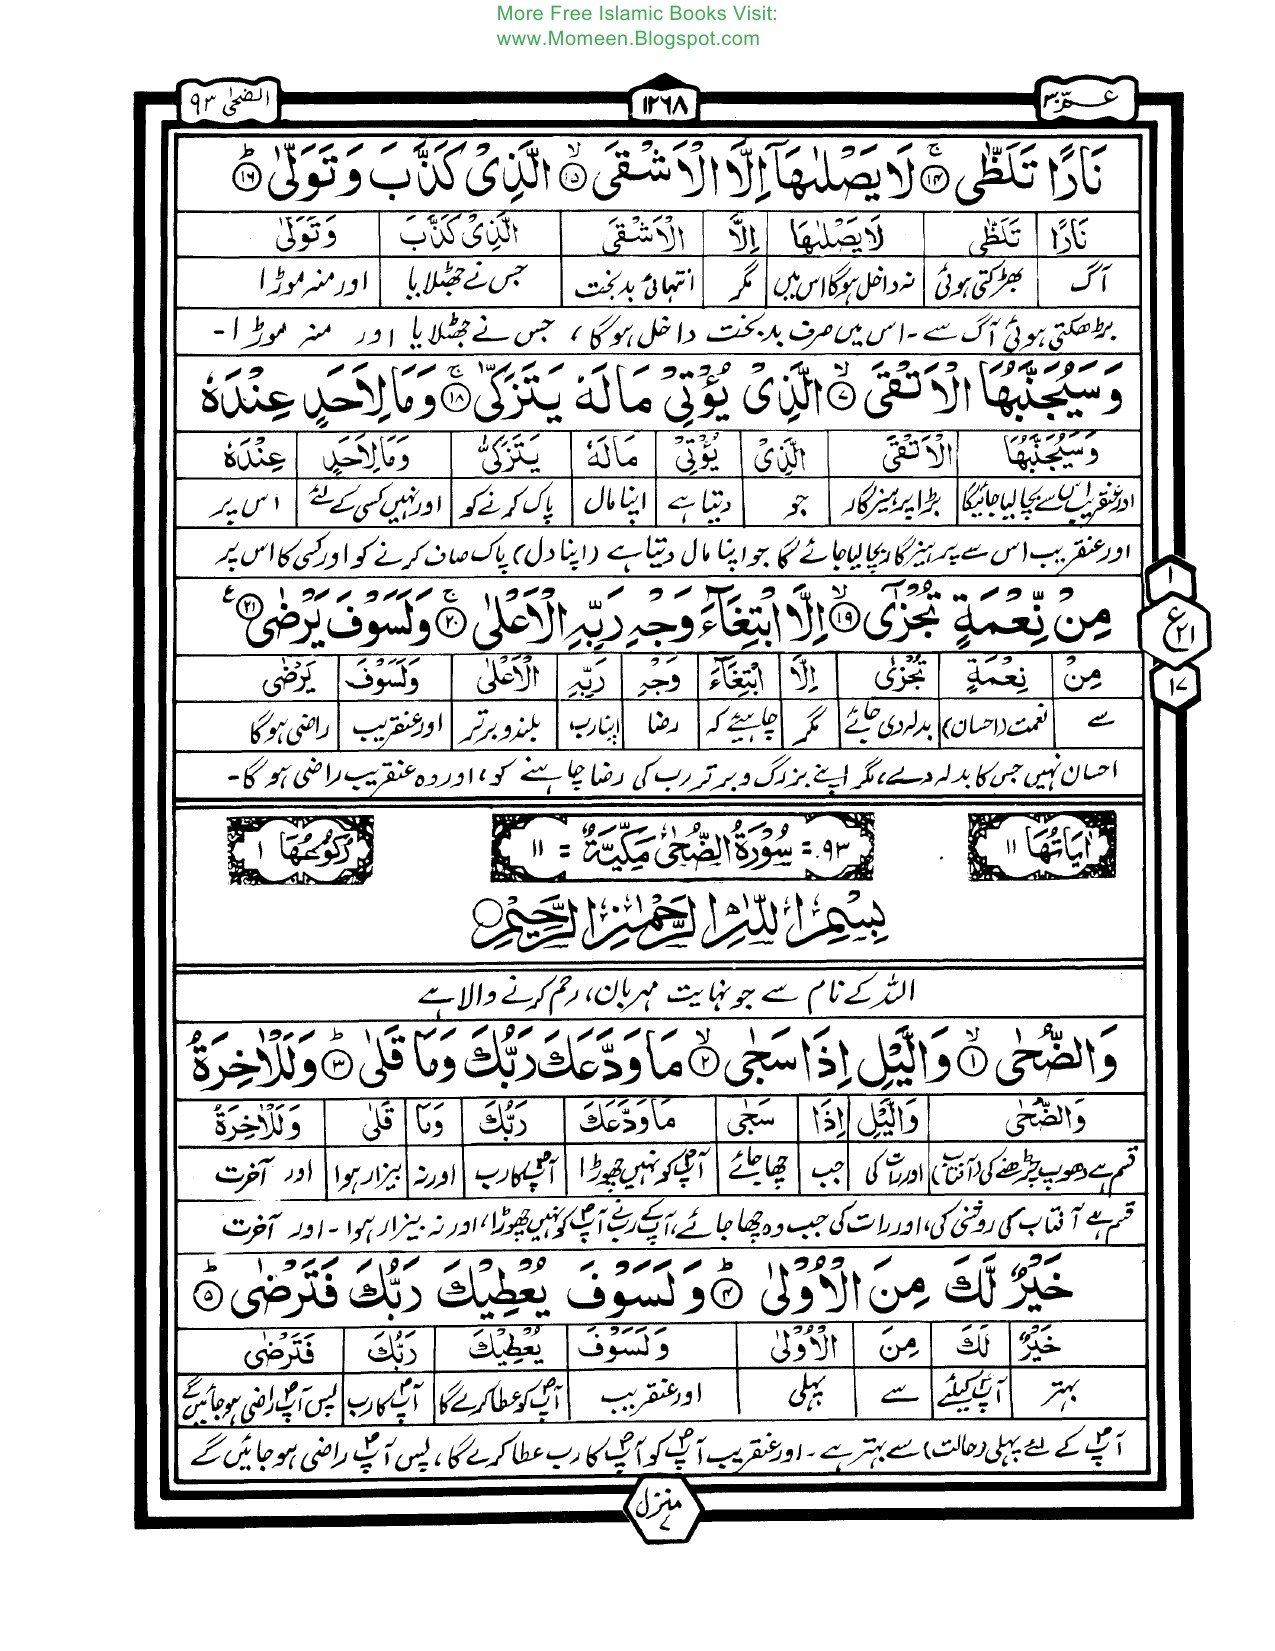 More Free Islamic Books Visit:
www.Momeen.Blogspot.com
عمّ ۳۰ ۱۲۶۸ الضحٰی ۹۳
نَارًا تَلَظّٰى ۱۴ لَا يَصْلٰىهَاۤ اِلَّا الْاَشْقَى ۱۵ الَّذِىْ كَذَّبَ وَ تَوَلّٰى ۱۶
نَارًا تَلَظّٰى لَا يَصْلٰىهَا اِلَّا الْاَشْقَى الَّذِىْ كَذَّبَ وَتَوَلّٰى
آگ بھڑکتی ہوئی نہ داخل ہوگا اس میں مگر انتہائی بدبخت جس نے جھٹلایا اور منہ موڑا
بڑھکتی ہوئی آگ سے - اس میں صرف بدبخت داخل ہوگا، جس نے جھٹلایا اور منہ موڑا -
وَسَيُجَنَّبُهَا الْاَتْقَى ۱۷ الَّذِىْ يُؤْتِىْ مَالَهٗ يَتَزَكّٰى ۱۸ وَمَا لِاَحَدٍ عِنْدَهٗ
وَسَيُجَنَّبُهَا الْاَتْقَى الَّذِىْ يُؤْتِىْ مَالَهٗ يَتَزَكّٰى وَمَا لِاَحَدٍ عِنْدَهٗ
اور عنقریب اس سے بچا لیا جائیگا بڑا پرہیزگار جو دیتا ہے اپنا مال پاک کرنے کو اور نہیں کسی کے لئے اس پر
اور عنقریب اس سے پرہیزگار بچا لیا جائے گا جو اپنا مال دیتا ہے (اپنا دل) پاک صاف کرنے کو اور کسی کا اس پر
مِنْ نِّعْمَةٍ تُجْزٰٓى ۱۹ اِلَّا ابْتِغَآءَ وَجْهِ رَبِّهِ الْاَعْلٰى ۲۰ وَلَسَوْفَ يَرْضٰى ۲۱
۱
ع ۲۱
۱۷
مِنْ نِعْمَةٍ تُجْزٰٓى اِلَّا ابْتِغَآءَ وَجْهِ رَبِّهِ الْاَعْلٰى وَلَسَوْفَ يَرْضٰى
سے نعمت (احسان) بدلہ دی جائے مگر چاہیئے کہ رضا اپنا رب بلند و برتر اور عنقریب راضی ہوگا
احسان نہیں جس کا بدلہ دے، مگر اپنے بزرگ و برتر رب کی رضا چاہنے کو، اور وہ عنقریب راضی ہوگا -
اٰيَاتُهَا ۱۱ ۹۳ = سُوْرَةُ الضُّحٰى مَكِّيَّةٌ = ۱۱ رُكُوْعُهَا ۱
بِسْمِ اللّٰهِ الرَّحْمٰنِ الرَّحِيْمِ
اللہ کے نام سے جو نہایت مہربان، رحم کرنے والا ہے
وَالضُّحٰى ۱ وَالَّيْلِ اِذَا سَجٰى ۲ مَا وَدَّعَكَ رَبُّكَ وَمَا قَلٰى ۳ وَلَلْاٰخِرَةُ
وَالضُّحٰى وَالَّيْلِ اِذَا سَجٰى مَا وَدَّعَكَ رَبُّكَ وَمَا قَلٰى وَلَلْاٰخِرَةُ
قسم ہے دھوپ چڑھنے کی (آفتاب) اور رات کی جب چھا جائے آپؐ کو نہیں چھوڑا آپؐ کا رب اور نہ بیزار ہوا اور آخرت
قسم ہے آفتاب کی روشنی کی، اور رات کی جب وہ چھا جائے، آپؐ کے رب نے آپؐ کو نہیں چھوڑا، اور نہ بیزار ہوا - اور آخرت
خَيْرٌ لَّكَ مِنَ الْاُوْلٰى ۴ وَ لَسَوْفَ يُعْطِيْكَ رَبُّكَ فَتَرْضٰى ۵
خَيْرٌ لَكَ مِنَ الْاُوْلٰى وَ لَسَوْفَ يُعْطِيْكَ رَبُّكَ فَتَرْضٰى
بہتر آپؐ کیلئے سے پہلی اور عنقریب آپؐ کو عطا کرے گا آپؐ کا رب پس آپؐ راضی ہو جائیں گے
آپؐ کے لئے پہلی (حالت) سے بہتر ہے - اور عنقریب آپؐ کو آپؐ کا رب عطا کرے گا، پس آپؐ راضی ہو جائیں گے
منزل ۷